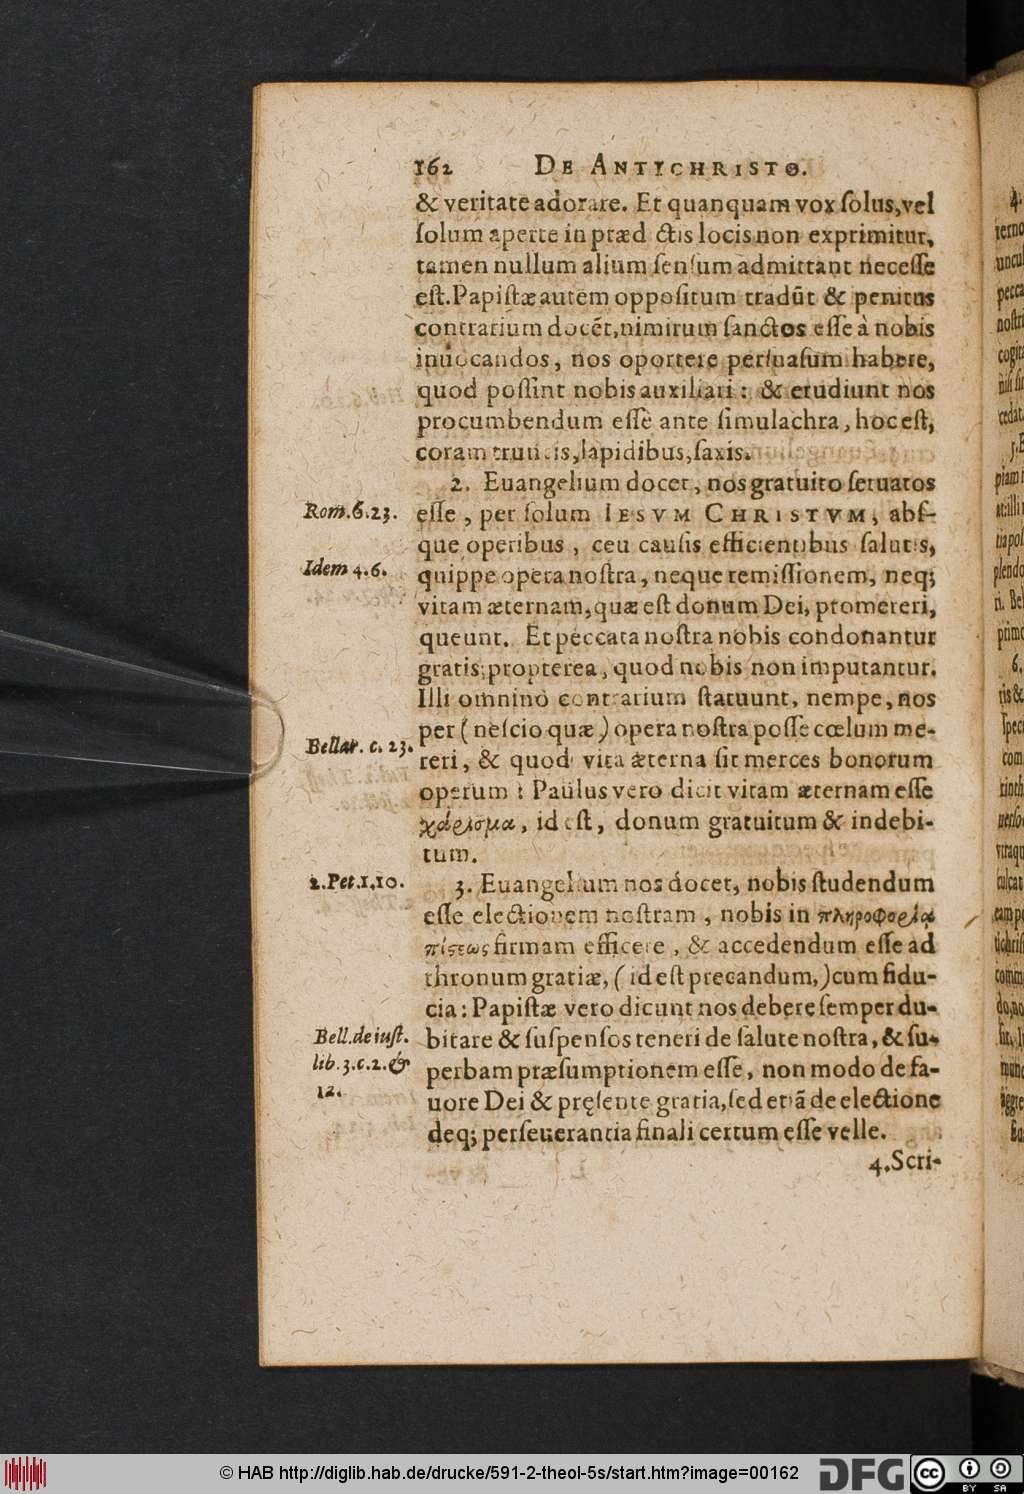 162 DE ANTICHRISTO.
& veritate adorare. Et quanquam vox ſolus, vel
ſolum aperte in præd ctis locis non exprimitur,
tamen nullum alium ſenſum admittant neceſſe
eſt. Papiſtæ autem oppoſitum tradūt & penitus
contrarium docēt, nimirum ſanctos eſſe à nobis
inuocandos, nos oportere perſuaſum habere,
quod poſſint nobis auxiliari: & erudiunt nos
procumbendum eſſe ante ſimulachra, hoc eſt,
coram truncis, lapidibus, ſaxis.
2. Euangelium docet, nos gratuito ſeruatos
Rom. 6. 23.
eſſe, per ſolum IESVM CHRISTVM, abſ-
que operibus, ceu cauſis efficientibus ſalutis,
Idem 4. 6.
quippe opera noſtra, neque remiſſionem, neq;
vitam æternam, quæ eſt donum Dei, promereri,
queunt. Et peccata noſtra nobis condonantur
gratis; propterea, quod nobis non imputantur.
Illi omnino contrarium ſtatuunt, nempe, nos
per (neſcio quæ) opera noſtra poſſe cœlum me-
Bellar. c. 23.
reri, & quod vita æterna ſit merces bonorum
operum: Paulus vero dicit vitam æternam eſſe
χάρισμα, id eſt, donum gratuitum & indebi-
tum.
2. Pet. 1, 10.
3. Euangelium nos docet, nobis ſtudendum
eſſe electionem noſtram, nobis in πληροφορίᾳ
πίϛεως firmam efficere, & accedendum eſſe ad
thronum gratiæ, (id eſt precandum,) cum fidu-
cia: Papiſtæ vero dicunt nos debere ſemper du-
Bell. de iuſt.
lib. 3. c. 2. &
12.
bitare & ſuſpenſos teneri de ſalute noſtra, & ſu-
perbam præſumptionem eſſe, non modo de fa-
uore Dei & pręſente gratia, ſed etiã de electione
deq; perſeuerantia finali certum eſſe velle.
4. Scri-
© HAB http://diglib.hab.de/drucke/591-2-theol-5s/start.htm?image=00162
DFG
cc
BY SA